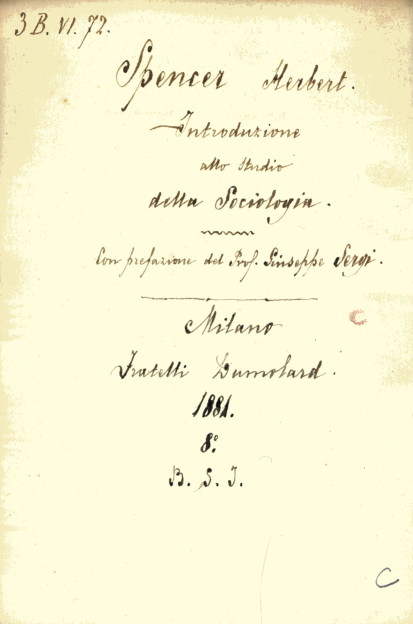 3 B. VI. 72.
Spencer Herbert.
Introduzione
allo studio
della Sociologia.
Con prefazione del Prof. Giuseppe Sergi.
Milano
Fratelli Dumolard.
1881.
8º
B. S. I.
C